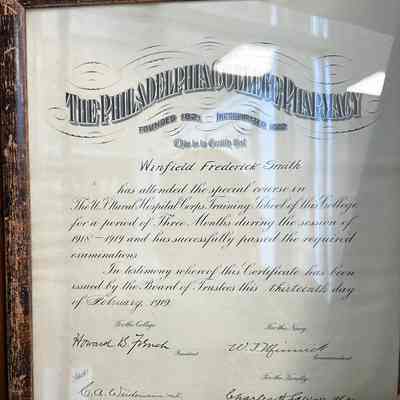 The Philadelphia College of Pharmacy
FOUNDED 1821 INCORPORATED 1822
This is to Certify that
Winfield Frederick Smith
has attended the special course in
The U.S. Naval Hospital Corps Training School of this College
for a period of Three Months during the session of
1918–1919 and has successfully passed the required
examinations
In testimony whereof this Certificate has been
issued by the Board of Trustees this thirteenth day
of February, 1919
For the College For the Navy
Howard B. French
President
For the Faculty
C.A. Weidemann